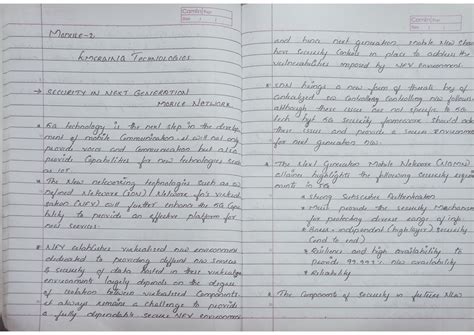 Module-2
Emerging Technologies
→ SECURITY IN NEXT GENERATION
MOBILE NETWORK
* 5G technology is the next step in the develop
ment of mobile communication it will not only
provide voice and communication but also
provide Capabilities for new technologies such
as IOT.
* The New networking technologies such as S/w
Defined Network (SDN) / Network fn's virtual
isation (NFV) will further enhance the 5G Capa
bility to provide an effective platform for
new services.
* NFV establishes virtualized new environment
dedicated to providing diffent nw services
& security of data hosted in these virtualized
environments largely depends on the degree
of isolation between virtualized Components
it always remains a challenge to provide
a fully dependable secure NFV environment
and hence next generation mobile New
have security Controls in place to address the
vulnerabilities imposed by NFV environment
* SDN brings a new form of threats by
centralized controlling
although these issues are not specific to 5G
tech security framework should
these issues and provide a secure environment
for next generation nws.
* The Next Generation Mobile Network
alliance highlights the following security requir
ements in 5G
* Strong Subscriber Authentication
* Must provide the security Mechanism
for protecting diverse range of info
* Access-independent (high level) security
(end to end)
* Resilience and high availability to
provide 99.999% nw availability
* Reliability
* The Components of security in future New